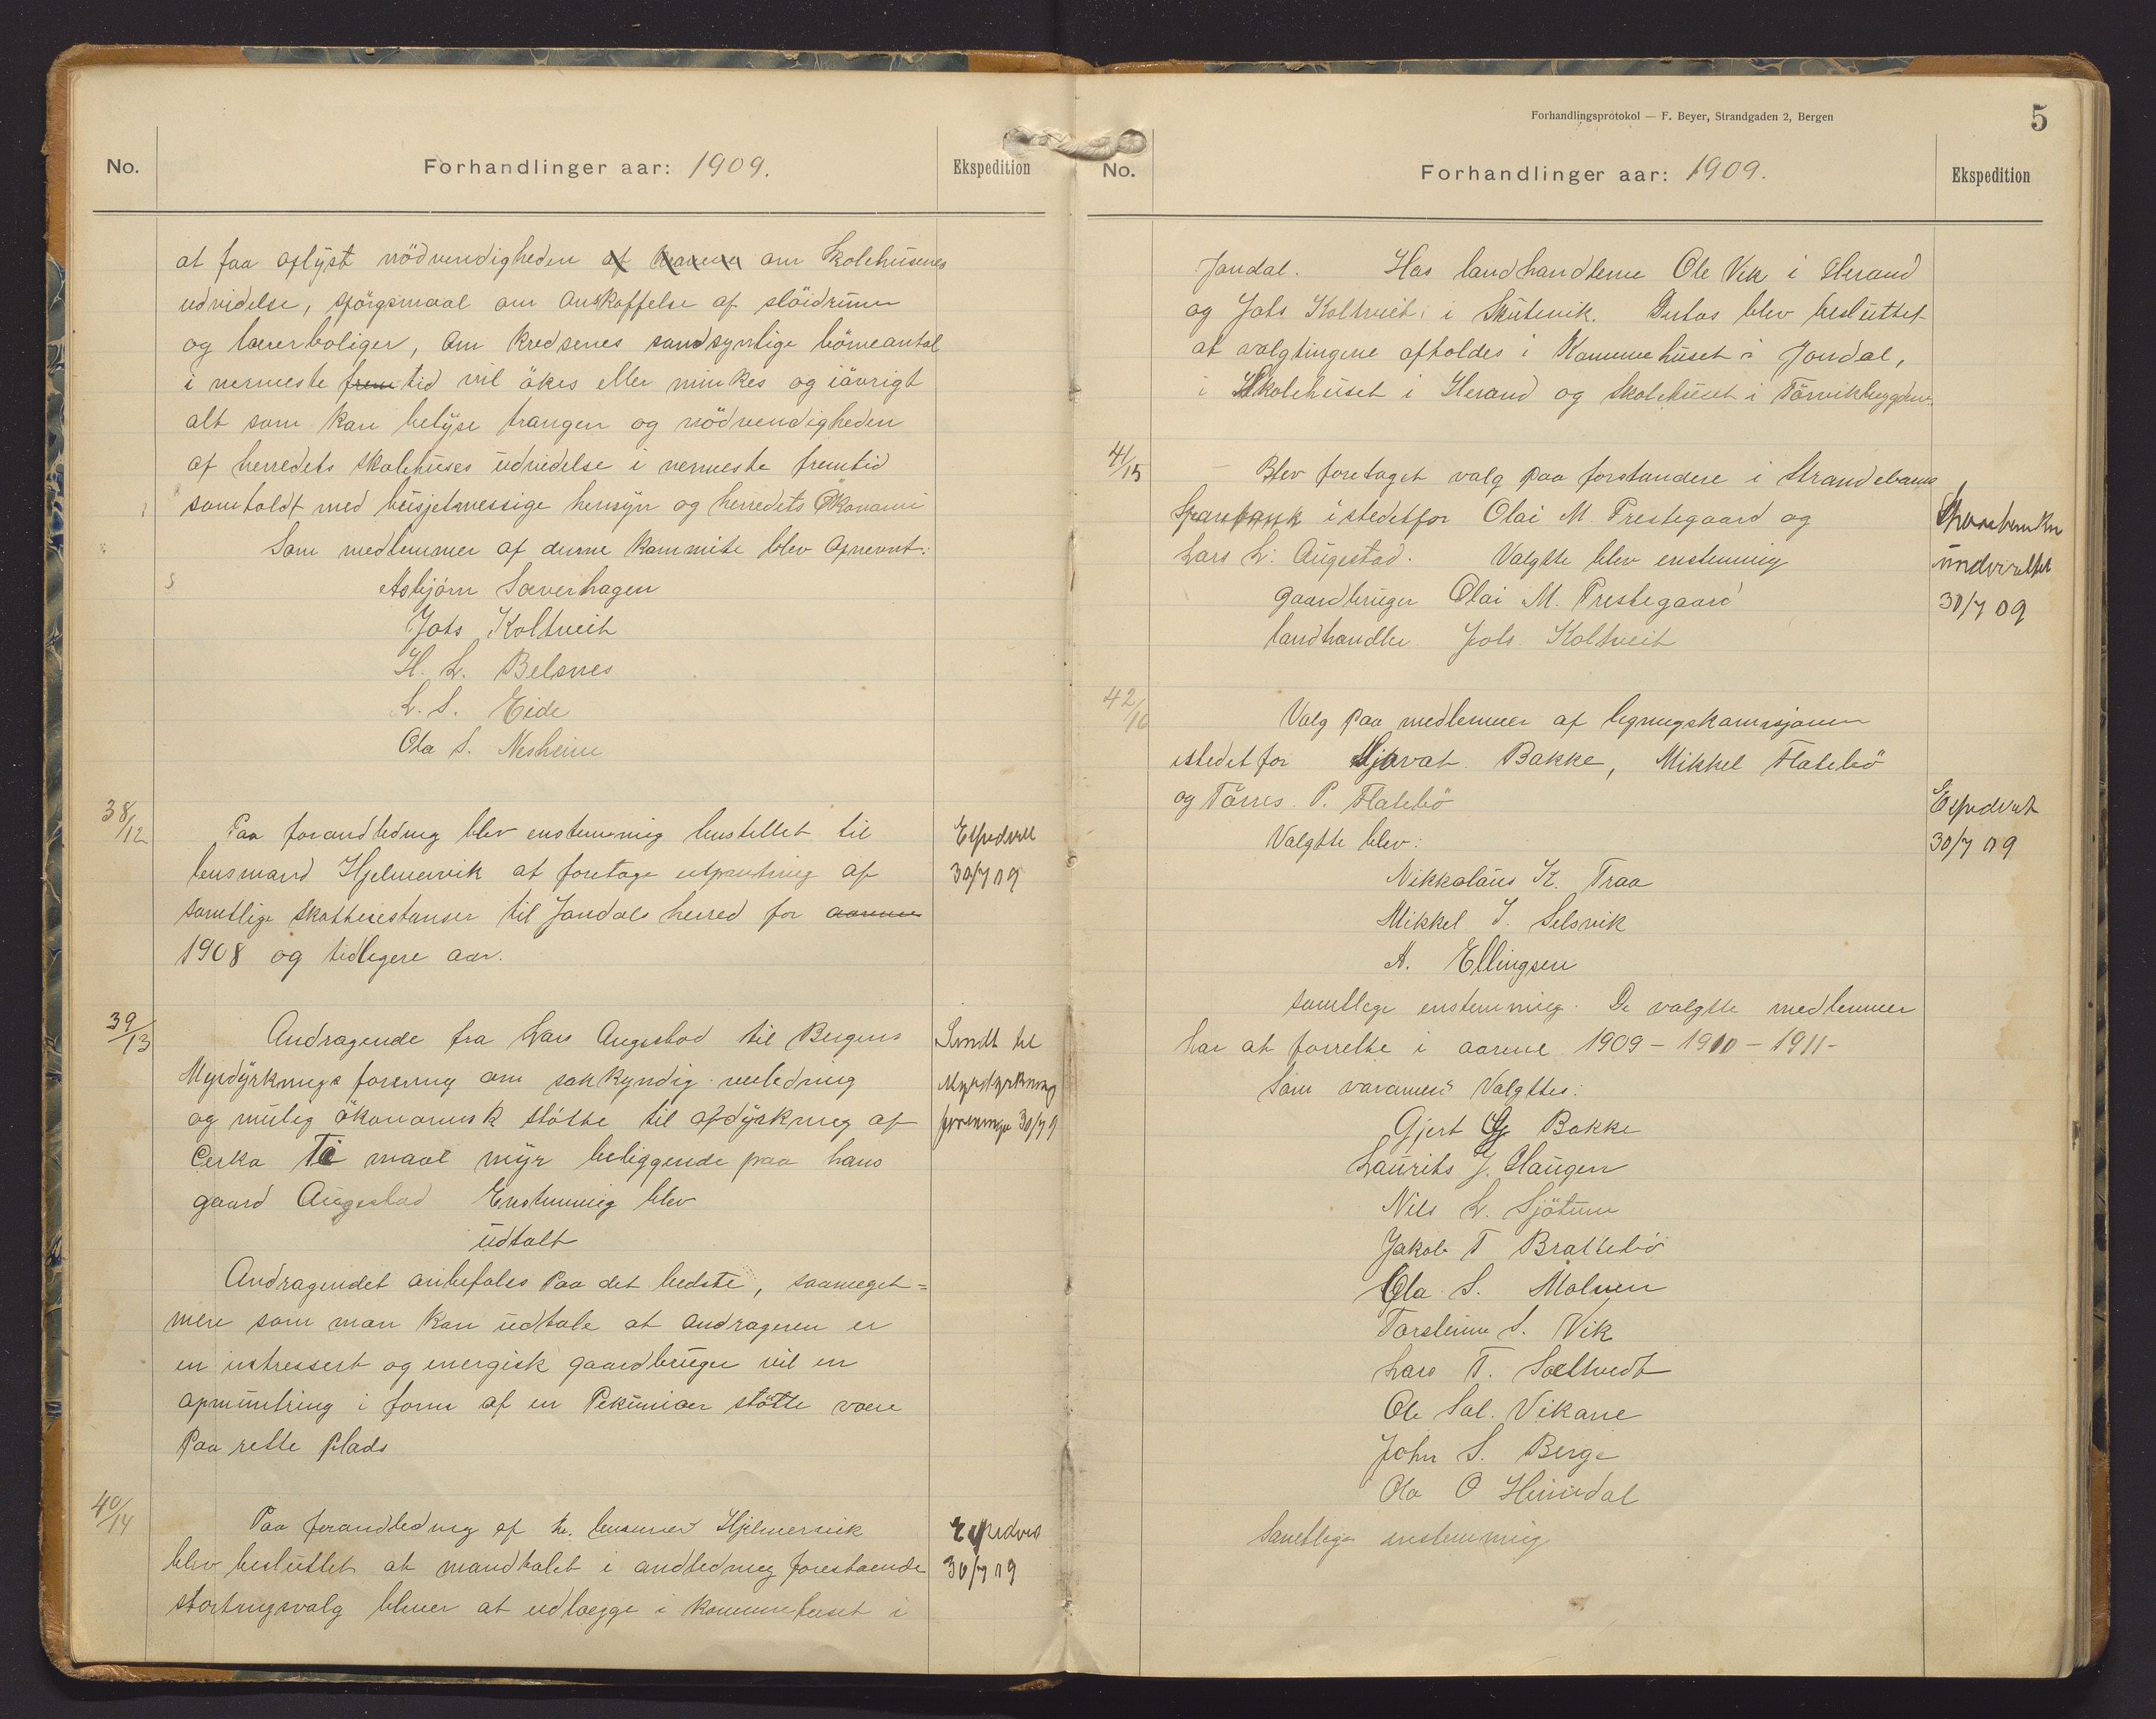 No.
Forhandlinger aar: 1909.
Ekspedition
at faa oplyst nödvendigheden af om Skolehusenes
udvidelse, spörgsmaal om anskaffelse af slöidrum
og lærerboliger, om kredsenes sandsynlige börneantal
i nermeste frem tid vil ökes eller minkes og iövrigt
alt som kan belyse trangen og nödvendigheden
af herredets skolehuses udvidelse i nermeste fremtid
samholdt med busjetmessige hensyn og herredets Ökonomi
Som medlemmer af denne kommite blev opnevnt:
Asbjörn Sæverhagen
Johs Koltveit
H. L. Belsnes
L. S. Eide
Ola S. Nesheim
38/12
Paa forandledning blev enstemmig henstillet til
lensmand Hjelmervik at foretage utpantning af
samtlige skatterestanser til Jondals herred for aarene
1908 og tidligere aar.
Expedert
30/7 09
39/13
Andragende fra Lars Augestad til Bergens
Myrdyrknings forening om sakkyndig veiledning
og mulig ökonomisk stötte til opdyrkning af
Cerka Ti maal myr beliggende paa hans
gaard Augestad Enstemmig blev
udtalt
Andragendet anbefales paa det bedste, saameget=
mere som man kan udtale at andrageren er
en intressert og energisk gaardbruger vil en
opmuntring i form af en Pekuniær stötte være
Paa rette Plads
Sendt til
Myrdyrkning
foreningen 30/7 9
40/14
Paa forandledning af hr. lensmand Hjelmervik
blev besluttet at mandtalet i andledning forestaende
stortingsvalg bliver at udlægge i kommunehuset i
Expedert
30/7 09
Forhandlingsprotokol — F. Beyer, Strandgaden 2, Bergen
5
No.
Forhandlinger aar: 1909.
Ekspedition
Jondal. Hos landhandlerne Ole Vik i Herand
og Johs Koltveit i Skutevik. Dertos blev besluttet
at valgtingene afholdes i Kommuehuset i Jondal,
i Skolehuset i Herand og skolehuset i Törvikbygden
41/15
Blev foretaget valg paa forstandere i Strandebarms
Sparebank istedetfor Olai M. Prestegaard og
Lars L. Augestad. Valgtte blev enstemmig
gaardbruger Olai M. Prestegaard
landhandler Johs. Koltveit
Sparebanken
underrettet
30/7 09
42/16
Valg paa medlemmer af ligningskomisjonen
istedetfor Sjovat Bakke, Mikkel Flatebö
og Törres P. Flatebö
Valgtte blev:
Nikkolaus K. Traa
Mikkel J. Selsvik
A. Ellingsen
samtlege enstemmig. De valgtte medlemmer
har at forrette i aarene 1909 – 1910 – 1911 –
Som varamend Valgttes:
Gjert G Bakke
Laurits J. Haugen
Nils L. Sjötun
Jakob T Brattebö
Ola S. Molven
Torsteinn S. Vik
Lars T. Sæltvedt
Ole Sal. Vikane
John S. Berge
Ola O Herredal
Samtlige enstemmig
Expedert
30/7 09